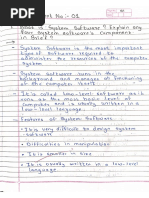 No :- 01
What is System Software? Explain any
four System Software's Component
in Brief?
System Software is the most important
type of Software required to
administer the resources of the computer
system.
System Software runs in the
and manages at functioning
of the computer itself.
It is called low-level software as it
runs at the most basic level of
computer and it is usually written in
a low-level language.
Features of System Software
• This very difficult to design system
software
• Difficulties in manipulation
• This smaller in size
• It is usually written in a low-level
language.